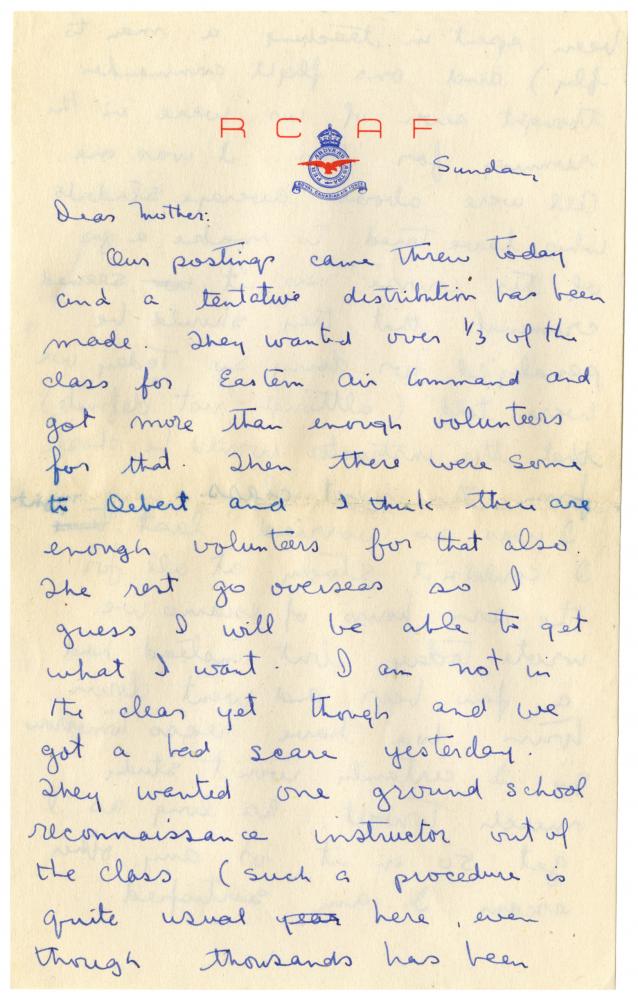 RCAF
PER ARDUA AD ASTRA
ROYAL CANADIAN AIR FORCE
Sunday
Dear Mother:
Our postings came threw today
and a tentative distribution has been
made. They wanted over 1/3 of the
class for Eastern Air Command and
got more than enough volunteers
for that. Then there were some
to Debert and I think there are
enough volunteers for that also.
The rest go overseas so I
guess I will be able to get
what I want. I am not in
the clear yet though and we
got a bad scare yesterday.
They wanted one ground school
reconnaissance instructor out of
the class (such a procedure is
quite usual year here, even
though thousands has been